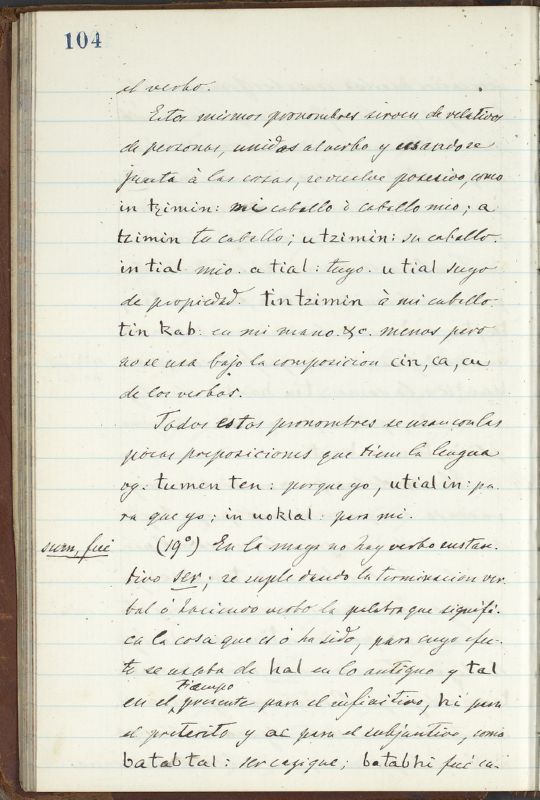 104
el verbo.
Estos mismos pronombres sirven de relativos
de personas, unidos al verbo y usandose
junta à las cosas, se vuelve posesivo, como
in tzimin: mi caballo ò caballo mio; a
tzimin tu caballo; u tzimin: su caballo.
in tial mio. a tial: tuyo. u tial suyo
de propiedad. tin tzimin à mi caballo.
tin kab: en mi mano. &c. menos pero
no se usa bajo la composicion cin, ca, cu
de los verbos.
Todos estos pronombres se usan con las
pocas preposiciones que tiene la lengua
vg: tumen ten: porque yo, utial in: pa-
ra que yo; in uoklal: para mi.
sum, fui (19°) En la maya no hay verbo sustan-
tivo ser; se suple dando la terminacion ver-
bal ó haciendo verbo la palabra que signifi-
ca la cosa que es ó ha sido, para cuyo efec-
to se usaba de hal en lo antiguo y tal
tiempo
en el presente para el infinitivo, hi para
el preterito y ac para el subjuntivo, como
batabtal: ser cacique; batabhi fué ca-